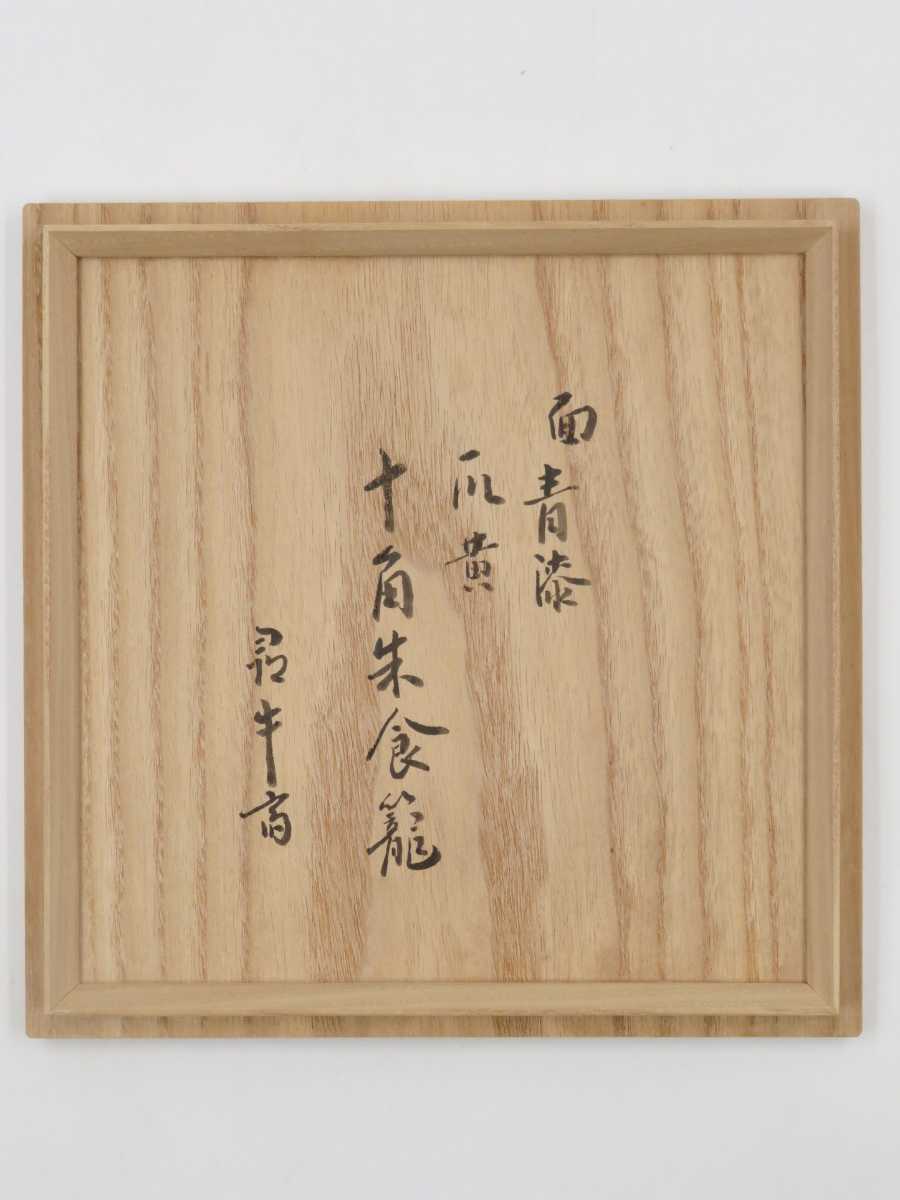 面青漆
爪黄
十角朱食籠
尋牛斎